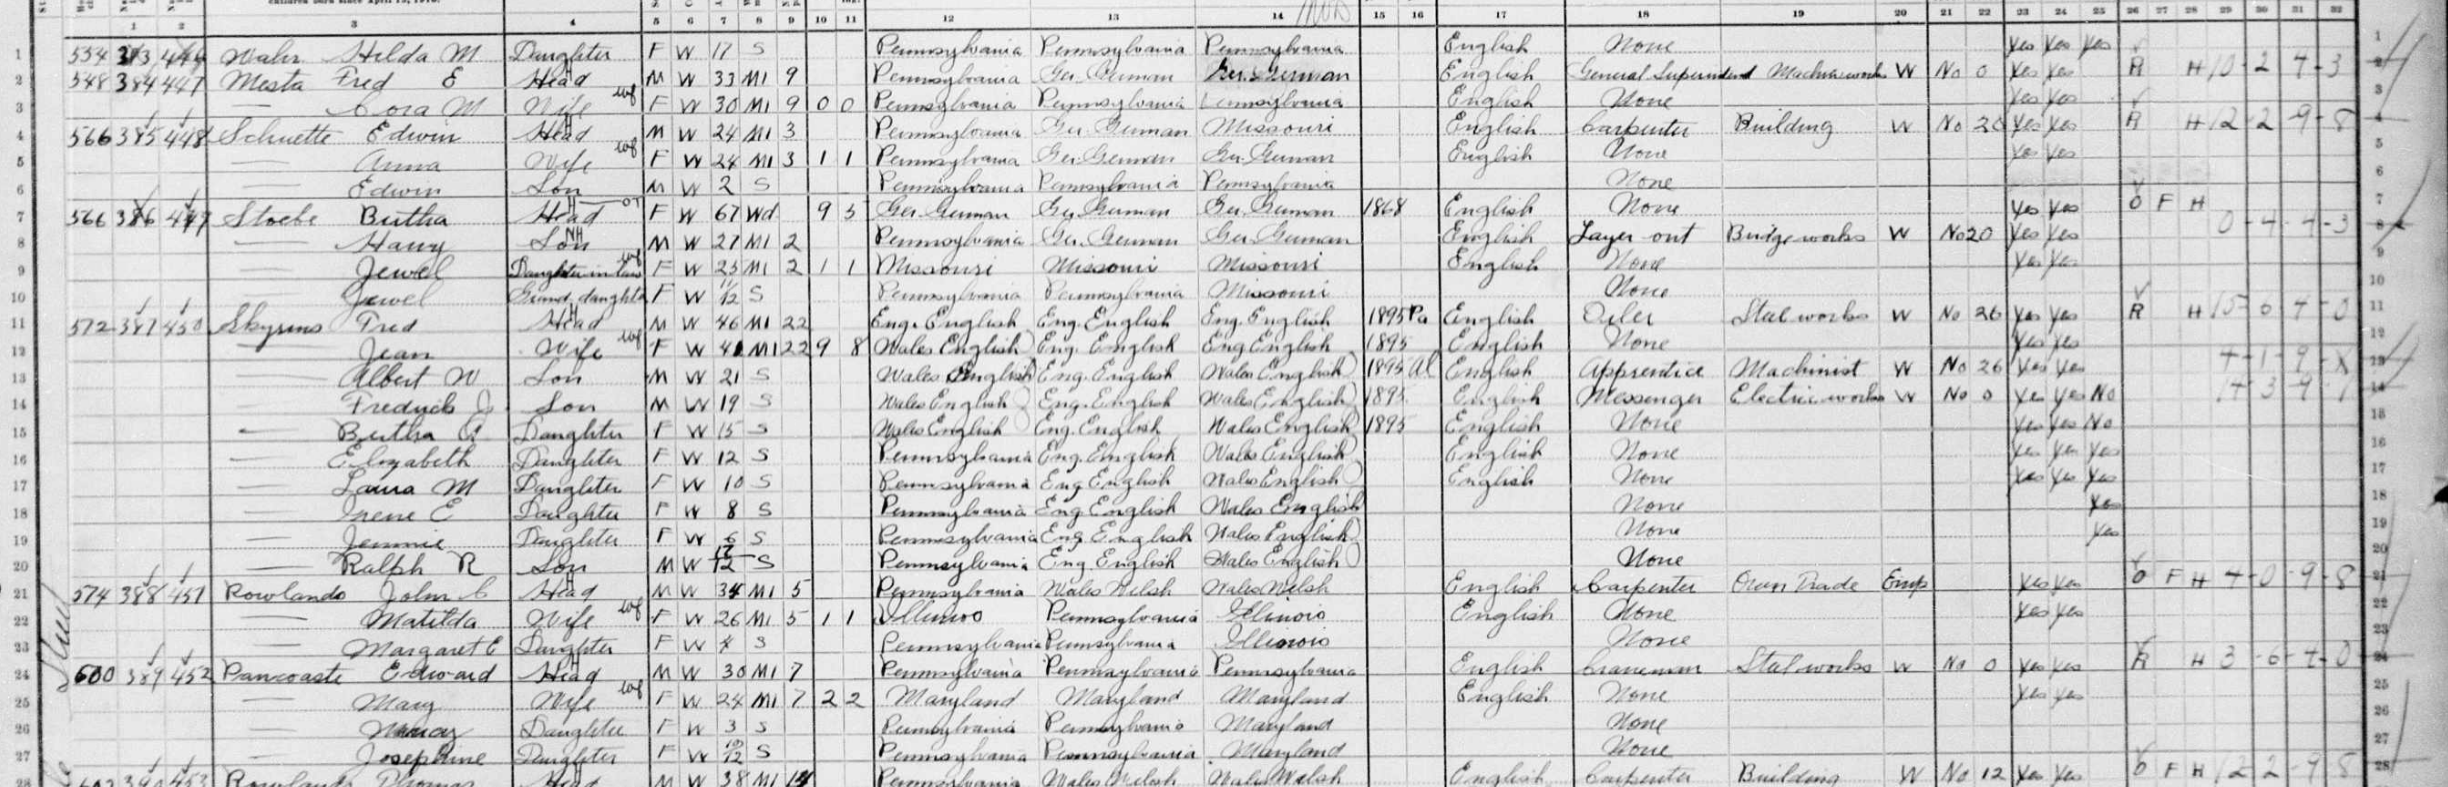 1 2 3 4 5 6 7 8 9 10 11 12 13 14 15 16 17 18 19 20 21 22 23 24 25 26 27 28 29 30 31 32
1 534 Wahr Hilda M Daughter F W 17 S Pennsylvania Pennsylvania Pennsylvania English None Yes Yes Yes 1
2 548 384 447 Mesta Fred E Head M W 33 M1 9 Pennsylvania Ger. German Ger. German English General Superintend Machine works W No 0 Yes Yes R H 10-2-4-3 2
3 — Cora M Wife F W 30 M1 9 0 0 Pennsylvania Pennsylvania Pennsylvania English None Yes Yes 3
4 566 385 448 Schuette Edwin Head M W 24 M1 3 Pennsylvania Ger. German Missouri English Carpenter Building W No 26 Yes Yes R H 12-2-9-8 4
5 — Anna Wife F W 24 M1 3 1 1 Pennsylvania Ger. German Ger. German English None Yes Yes 5
6 — Edwin Son M W 2 S Pennsylvania Pennsylvania Pennsylvania None 6
7 566 386 449 Stoebe Bertha Head F W 67 Wd 9 5 Ger. German Ger. German Ger. German 1868 English None Yes Yes O F H 7
8 — Harry Son M W 27 M1 2 Pennsylvania Ger. German Ger. German English Layer out Bridge works W No 20 Yes Yes 0-4-4-3 8
9 — Jewel Daughter in law F W 25 M1 2 1 1 Missouri Missouri Missouri English None Yes Yes 9
10 — Jewel Grand daughter F W 11/12 S Pennsylvania Pennsylvania Missouri None 10
11 572 387 450 Skyrms Fred Head M W 46 M1 22 Eng. English Eng. English Eng. English 1895 Pa English Oiler Steel works W No 26 Yes Yes R H 15-6-4-0 11
12 — Jean Wife F W 41 M1 22 9 8 Wales English Eng. English Eng English 1895 English None Yes Yes 12
13 — Albert W Son M W 21 S Wales English Eng. English Wales English 1895 Al English Apprentice Machinist W No 26 Yes Yes 4-1-9-X 13
14 — Fredrick J Son M W 19 S Wales English Eng. English Wales English 1895 English Messenger Electric works W No 0 Yes Yes No 14
15 — Bertha Daughter F W 15 S Wales English Eng. English Wales English 1895 English None Yes Yes No 15
16 — Elizabeth Daughter F W 12 S Pennsylvania Eng. English Wales English English None Yes Yes Yes 16
17 — Laura M Daughter F W 10 S Pennsylvania Eng English Wales English English None Yes Yes Yes 17
18 — Irene E Daughter F W 8 S Pennsylvania Eng English Wales English None Yes 18
19 — Jennie Daughter F W 6 S Pennsylvania Eng English Wales English None Yes 19
20 — Ralph R Son M W S Pennsylvania Eng English Wales English None 20
21 574 388 451 Rowlands John C Head M W 34 M1 5 Pennsylvania Wales Welsh Wales Welsh English Carpenter Own Trade Emp Yes Yes O F H 4-0-9-8 21
22 — Matilda Wife F W 26 M1 5 1 1 Illinois Pennsylvania Illinois English None Yes Yes 22
23 — Margaret E Daughter F W 4 S Pennsylvania Pennsylvania Illinois None 23
24 600 389 452 Pancoaste Edward Head M W 30 M1 7 Pennsylvania Pennsylvania Pennsylvania English Craneman Steel works W No 0 Yes Yes R H 3-6-4-0 24
25 — Mary Wife F W 24 M1 7 2 2 Maryland Maryland Maryland English None Yes Yes 25
26 — Nancy Daughter F W 3 S Pennsylvania Pennsylvania Maryland None 26
27 — Josephine Daughter F W 10/12 S Pennsylvania Pennsylvania Maryland None 27
28 602 390 453 Rowlands Thomas Head M W 38 M1 14 Pennsylvania Wales Welsh Wales Welsh English Carpenter Building W No 12 Yes Yes O F H 12 2-9-8 28